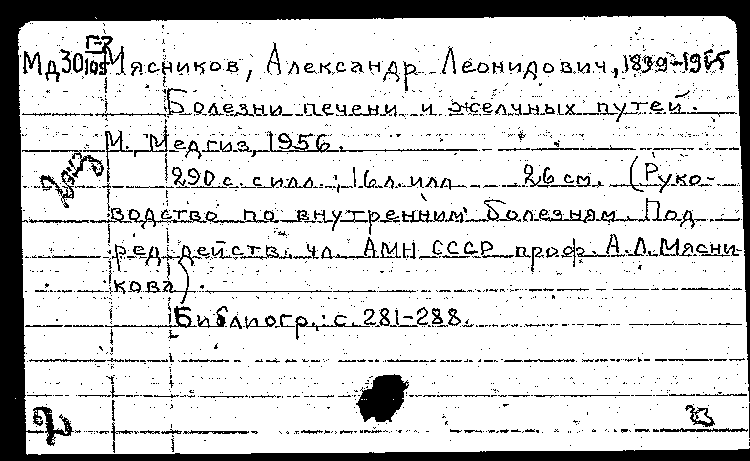 Мд30 Г-7
105 Мясников, Александр Леонидович, 1899-1965
Болезни печени и желчных путей.
М., Медгиз, 1956.
290 с. с илл.; 16 л. илл 26 см. (Руко-
водство по внутренним болезням. Под
ред. действ. чл. АМН СССР проф. А.Л. Мясни-
кова).
Библиогр.: с. 281-288.